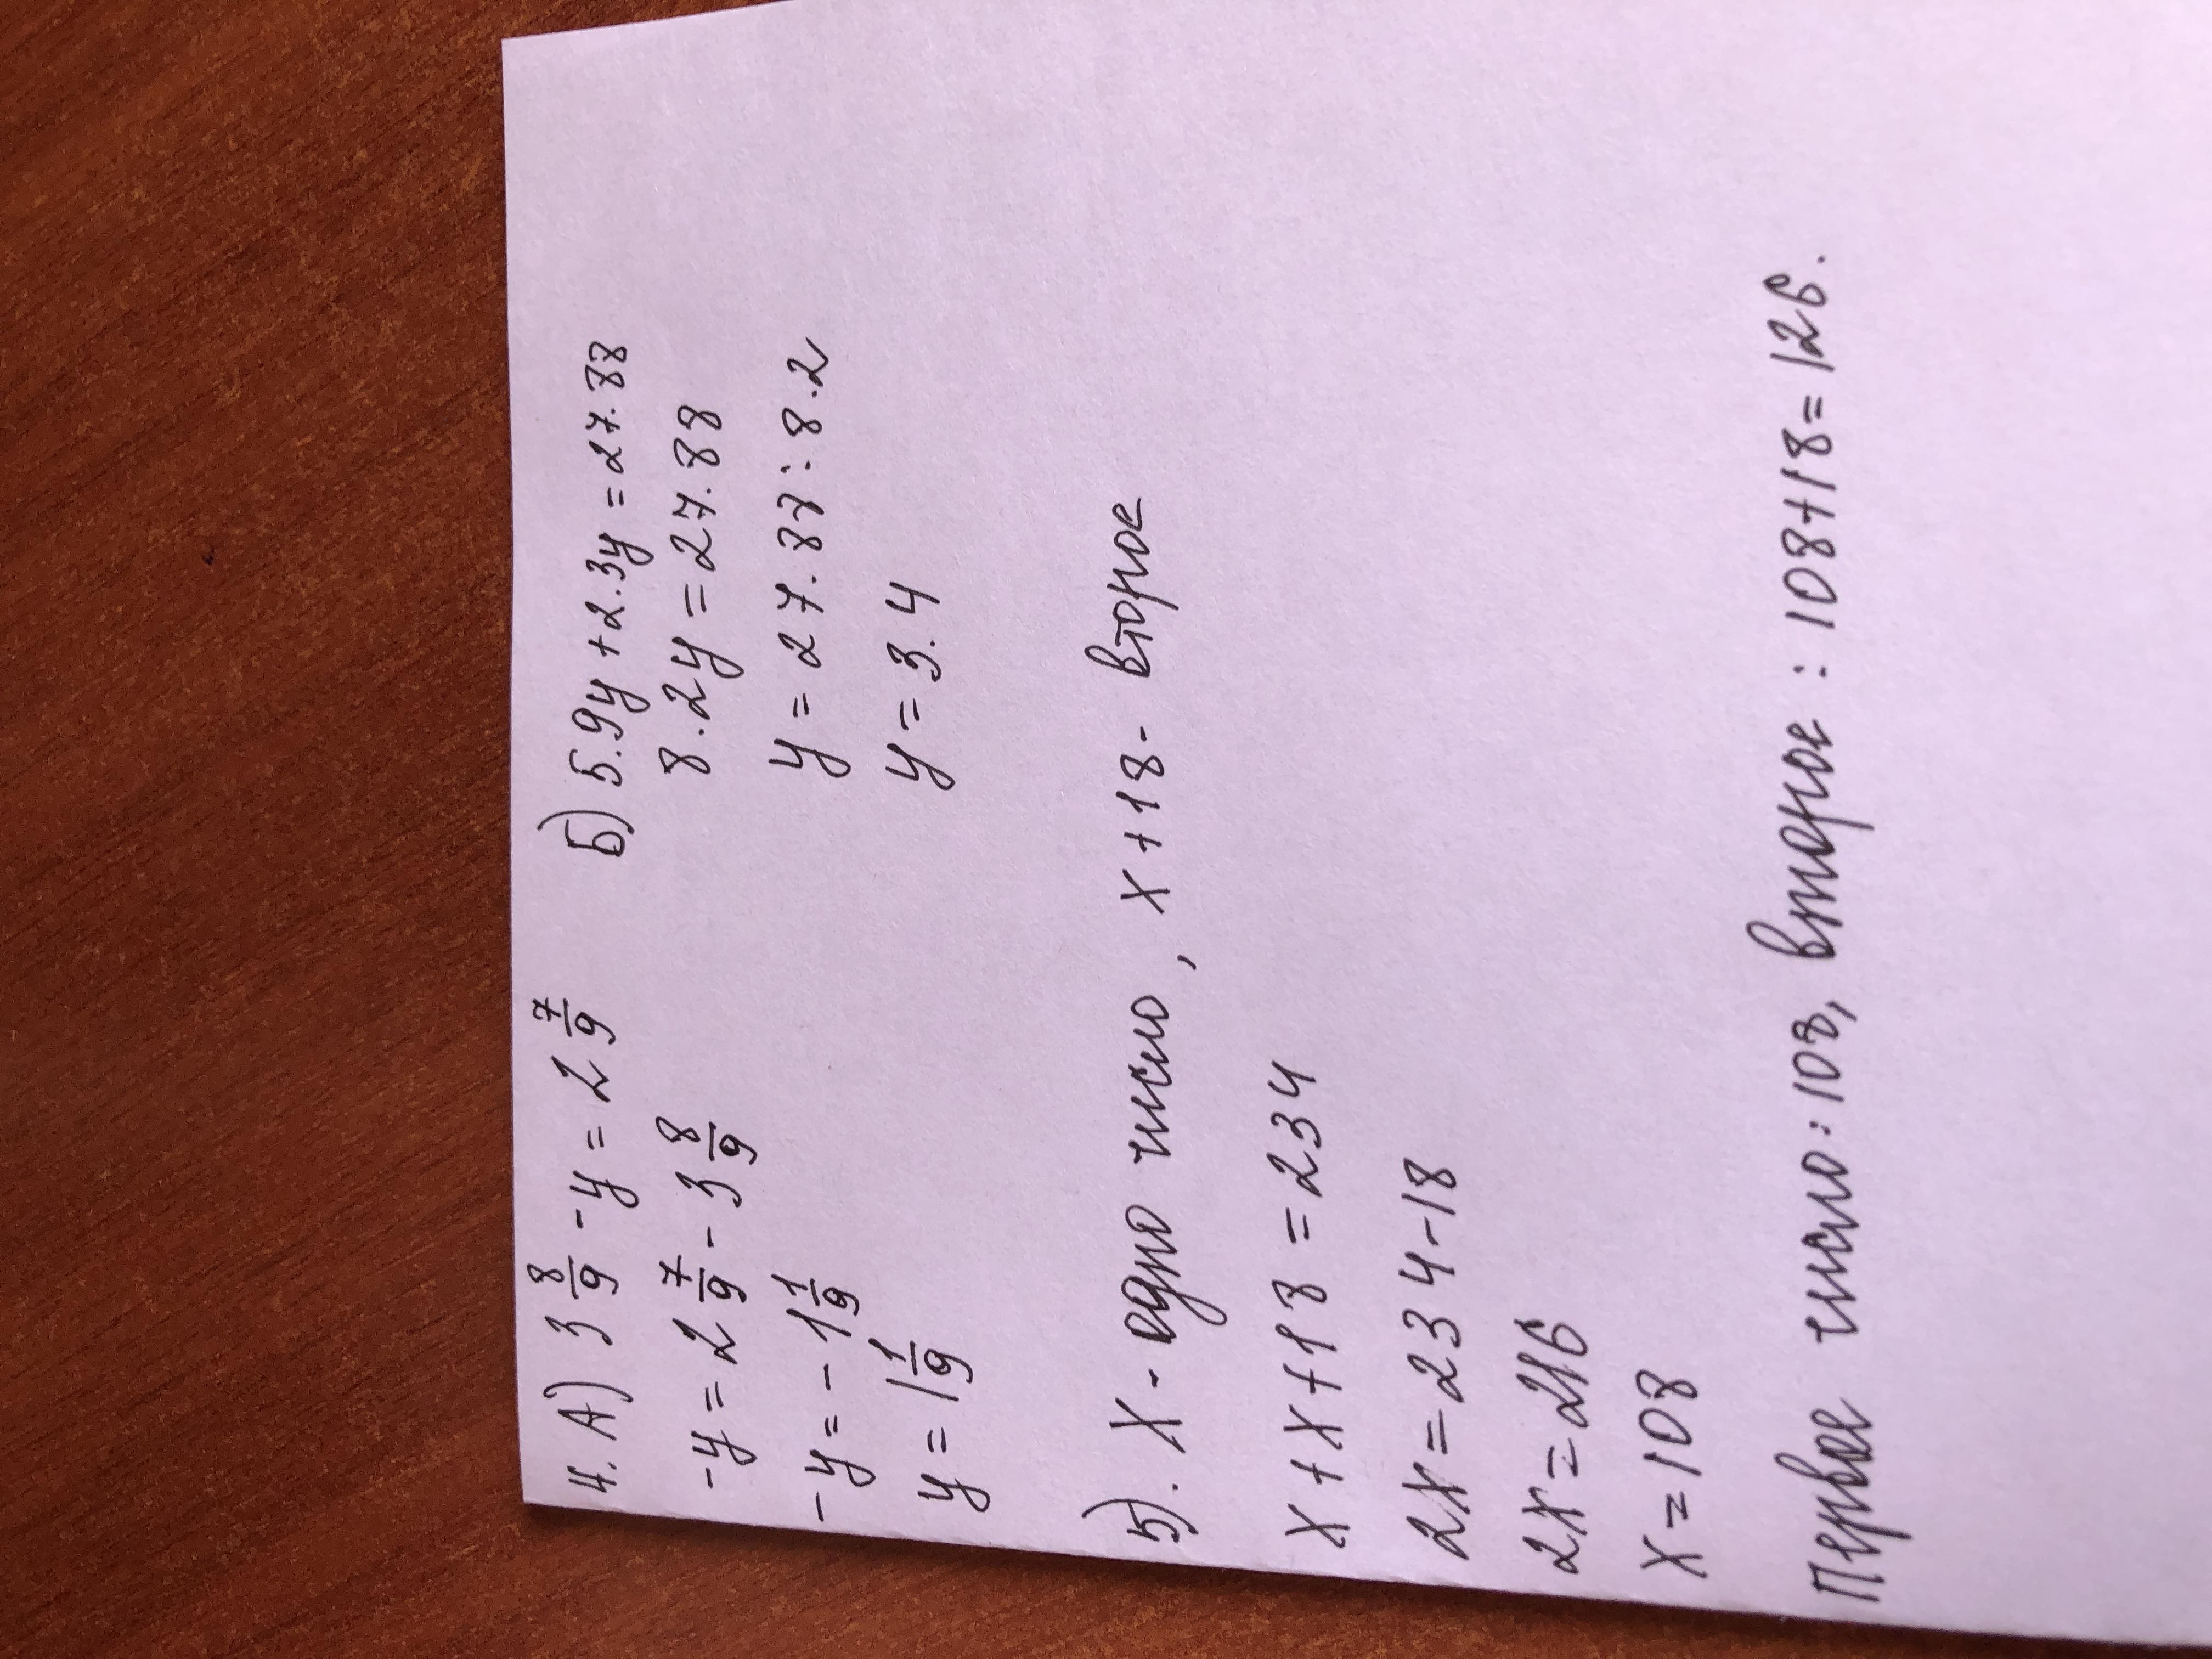 4. А) 3 8/9 - y = 2 7/9
-y = 2 7/9 - 3 8/9
-y = - 1 1/9
y = 1 1/9
Б) 5.9y + 2.3y = 27.88
8.2y = 27.88
y = 27.88 : 8.2
y = 3.4
5). X - одно число, x + 18 - второе
x + x + 18 = 234
2x = 234 - 18
2x = 216
x = 108
Первое число: 108, второе: 108 + 18 = 126.